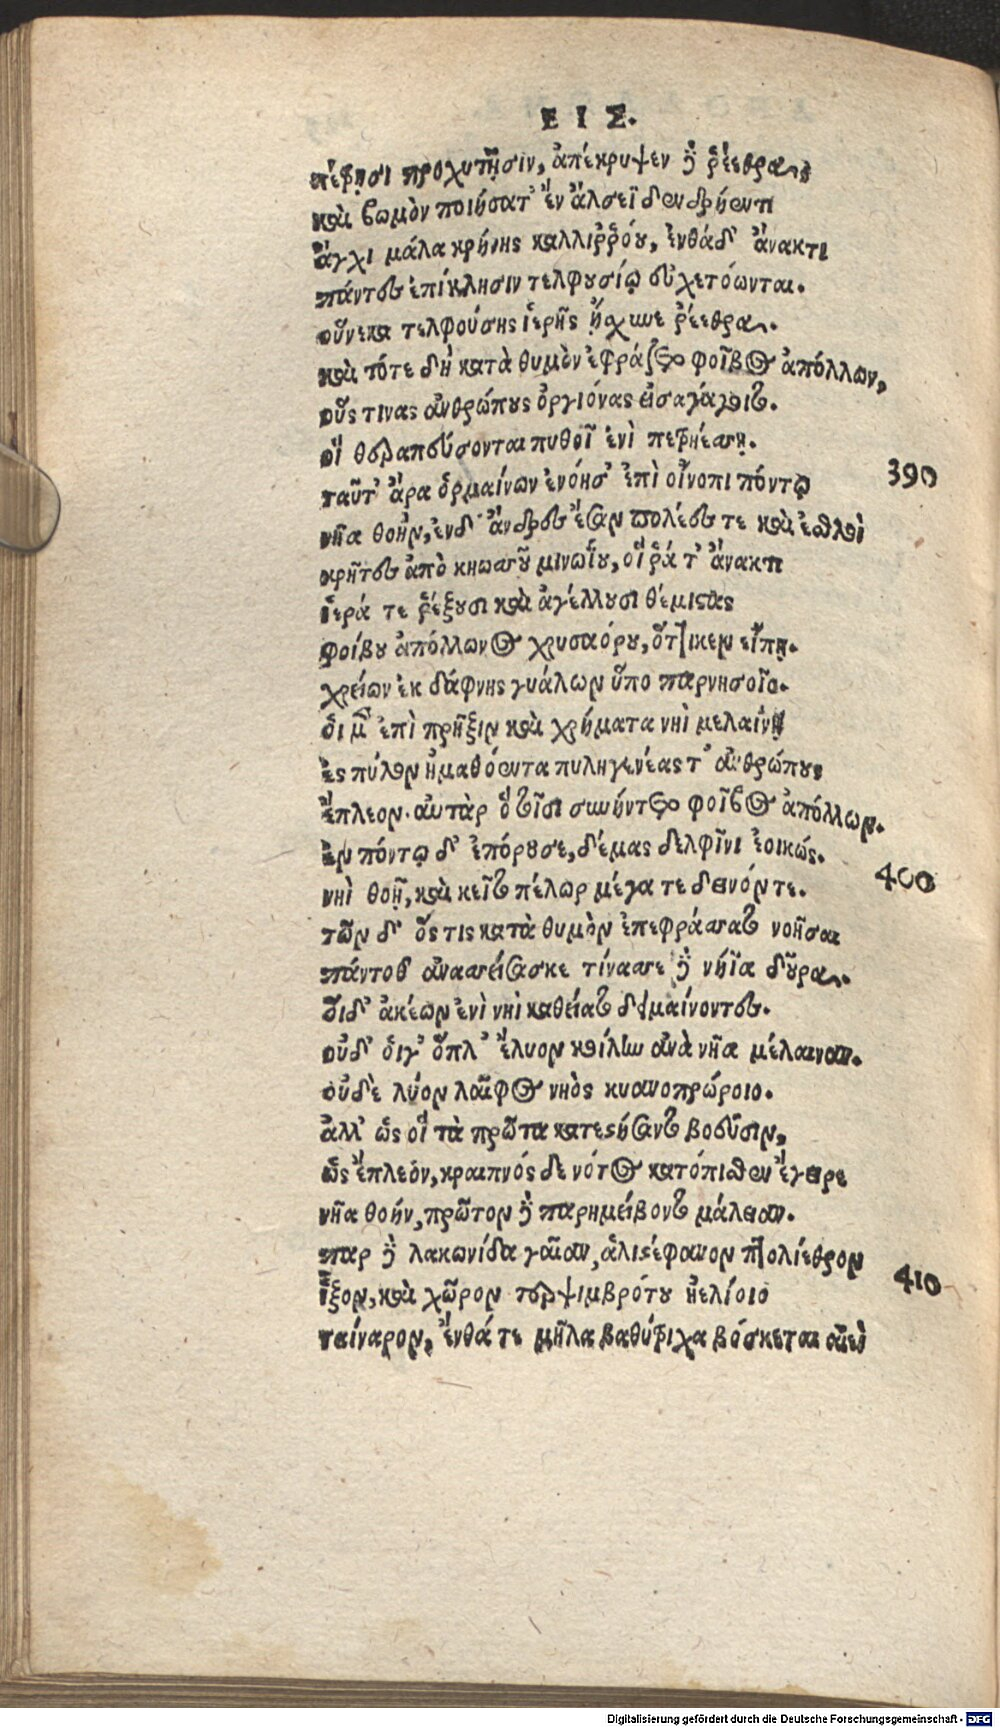 ΕΙΣ.
πέτρῃσι προχυτῇσιν, ἀπέκρυψεν δὲ ῥέεθρα,
καὶ βωμὸν ποιήσατ' ἐν ἄλσεϊ δενδρήεντι
ἄγχι μάλα κρήνης καλλιῤῥόου, ἐνθάδ' ἄνακτι
πάντες ἐπίκλησιν τελφουσίῳ εὐχετόωνται.
οὕνεκα τελφούσης ἱερῆς ᾔσχυνε ῥέεθρα.
καὶ τότε δὴ κατὰ θυμὸν ἐφράζετο φοῖβος ἀπόλλων,
οὕς τινας ἀνθρώπους ὀργιόνας εἰσαγάγοιτο.
οἳ θεραπεύσονται πυθοῖ ἐνὶ πετρηέσσῃ.
390
ταῦτ' ἄρα ὁρμαίνων ἐνόησ' ἐπὶ οἴνοπι πόντῳ
νῆα θοήν, ἐν δ' ἄνδρες ἔσαν πολέες τε καὶ ἐσθλοὶ
κρῆτες ἀπὸ κνωσσοῦ μινωΐου, οἵ ῥά τ' ἄνακτι
ἱερά τε ῥέζουσι καὶ ἀγέλλουσι θέμιστας
φοίβου ἀπόλλωνος χρυσαόρου, ὅττι κεν εἴπῃ.
χρείων ἐκ δάφνης γυάλων ὕπο παρνησοῖο.
οἱ μὲν ἐπὶ πρῆξιν καὶ χρήματα νηὶ μελαίνῃ
ἐς πύλον ἠμαθόεντα πυληγενέας τ' ἀνθρώπους
ἔπλεον. αὐτὰρ ὃ τοῖσι συνήντετο φοῖβος ἀπόλλων.
400
ἐν πόντῳ δ' ἐπόρουσε, δέμας δελφῖνι ἐοικώς.
νηὶ θοῇ, καὶ κεῖτο πέλωρ μέγα τε δεινόν τε.
τῶν δ' ὅς τις κατὰ θυμὸν ἐπεφράσσατο νοῆσαι
πάντοσ' ἀνασσείσασκε τίνασσε δὲ νήϊα δοῦρα.
οἱ δ' ἀκέων ἐνὶ νηὶ καθείατο δειμαίνοντες.
οὐδ' οἵγ' ὅπλ' ἔλυον κοίλην ἀνὰ νῆα μέλαιναν.
οὐδὲ λύον λαῖφος νηὸς κυανοπρώροιο.
ἀλλ' ὡς οἳ τὰ πρῶτα κατεστήσαντο βοεῦσιν,
ὣς ἔπλεόν, κραιπνός δε νότος κατόπισθεν ἔγειρε
νῆα θοήν, πρῶτον δὲ παρημείβοντο μάλειαν.
πὰρ δὲ λακωνίδα γαῖαν, ἁλιστέφανον πτολίεθρον
410
ἷξον, καὶ χῶρον τερψιμβρότου ἠελίοιο
ταίναρον, ἔνθά τε μῆλα βαθύτριχα βόσκεται αἰεὶ
Digitalisierung gefördert durch die Deutsche Forschungsgemeinschaft - DFG